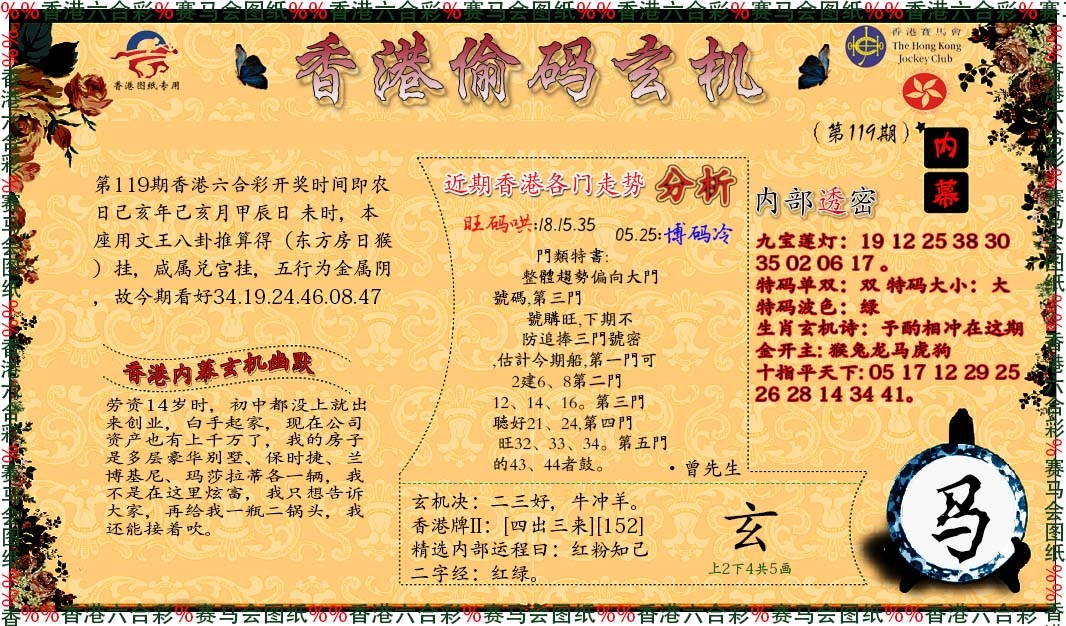 %%香港六合彩%赛马会图纸%%香港六合彩%赛马会图纸%%香港六合彩%赛马会图纸%%香港六合彩%赛马会图纸%%香港六合彩%赛
香港图纸专用
香港偷码玄机
香港賽馬會
The Hong Kong
Jockey Club
(第119期)
内
幕
第119期香港六合彩开奖时间即农
日己亥年己亥月甲辰日 未时，本
座用文王八卦推算得（东方房日猴
）挂，咸属兑宫挂，五行为金属阴
，故今期看好34.19.24.46.08.47
香港内幕玄机幽默
劳资14岁时，初中都没上就出
来创业，白手起家，现在公司
资产也有上千万了，我的房子
是多层豪华别墅、保时捷、兰
博基尼、玛莎拉蒂各一辆，我
不是在这里炫富，我只想告诉
大家，再给我一瓶二锅头，我
还能接着吹。
近期香港各门走势 分析
旺码哄:18.15.35
05.25:博码冷
門類特書:
整體趨勢偏向大門
號碼,第三門
號購旺,下期不
防追捧三門號密
,估計今期船,第一門可
2建6、8第二門
12、14、16。第三門
聽好21、24,第四門
旺32、33、34。第五門
的43、44者鼓。
·曾先生
玄机决：二三好，牛冲羊。
香港牌II：[四出三来][152]
精选内部运程曰：红粉知己
二字经：红绿。
玄
上2下4共5画
内部透密
九宝莲灯：19 12 25 38 30
35 02 06 17 。
特码单双：双 特码大小：大
特码波色：绿
生肖玄机诗：予酌相冲在这期
金开主: 猴兔龙马虎狗
十指平天下: 05 17 12 29 25
26 28 14 34 41。
马
香%%香港六合彩%赛马会图纸%%香港六合彩%赛马会图纸%%香港六合彩%赛马会图纸%%香港六合彩%赛马会图纸%%香港六合彩%